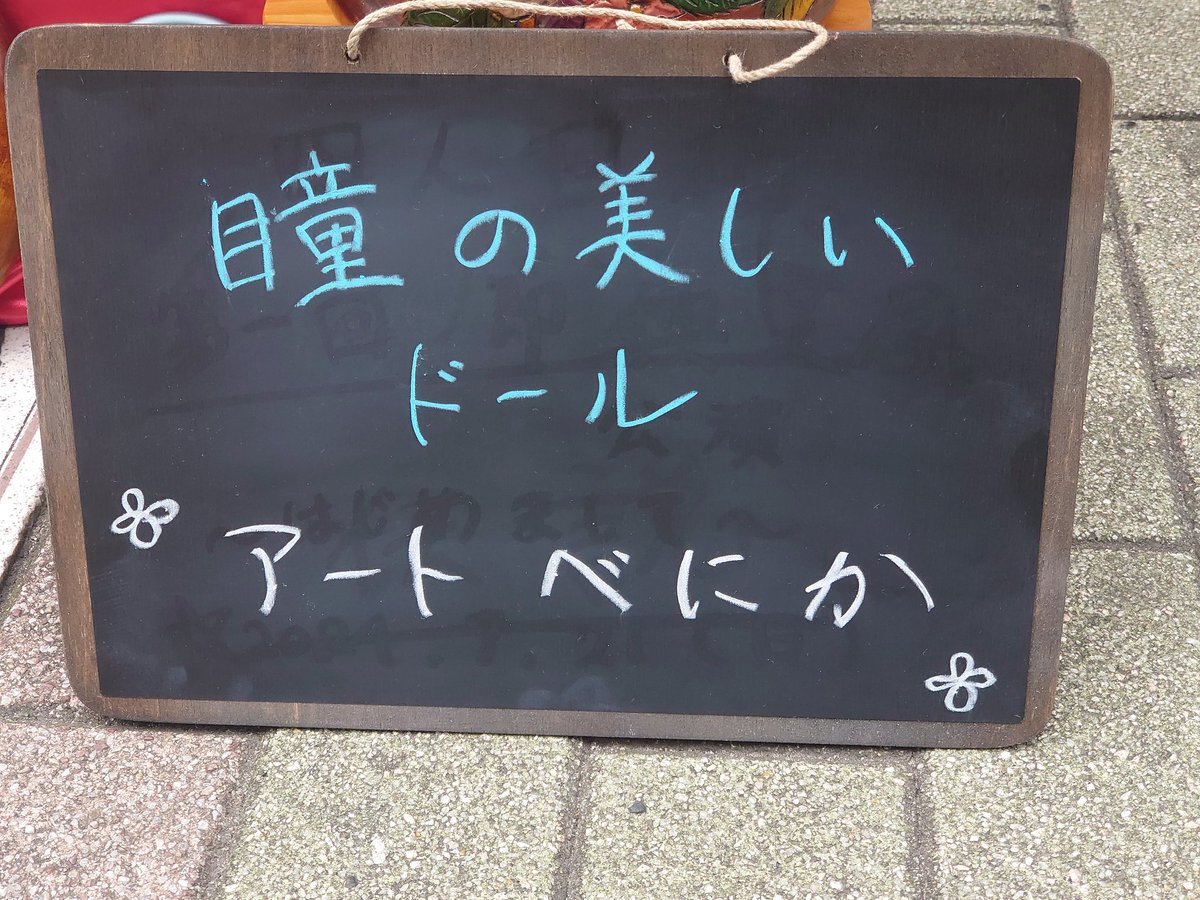 瞳の美しい
ドール
アートべにか